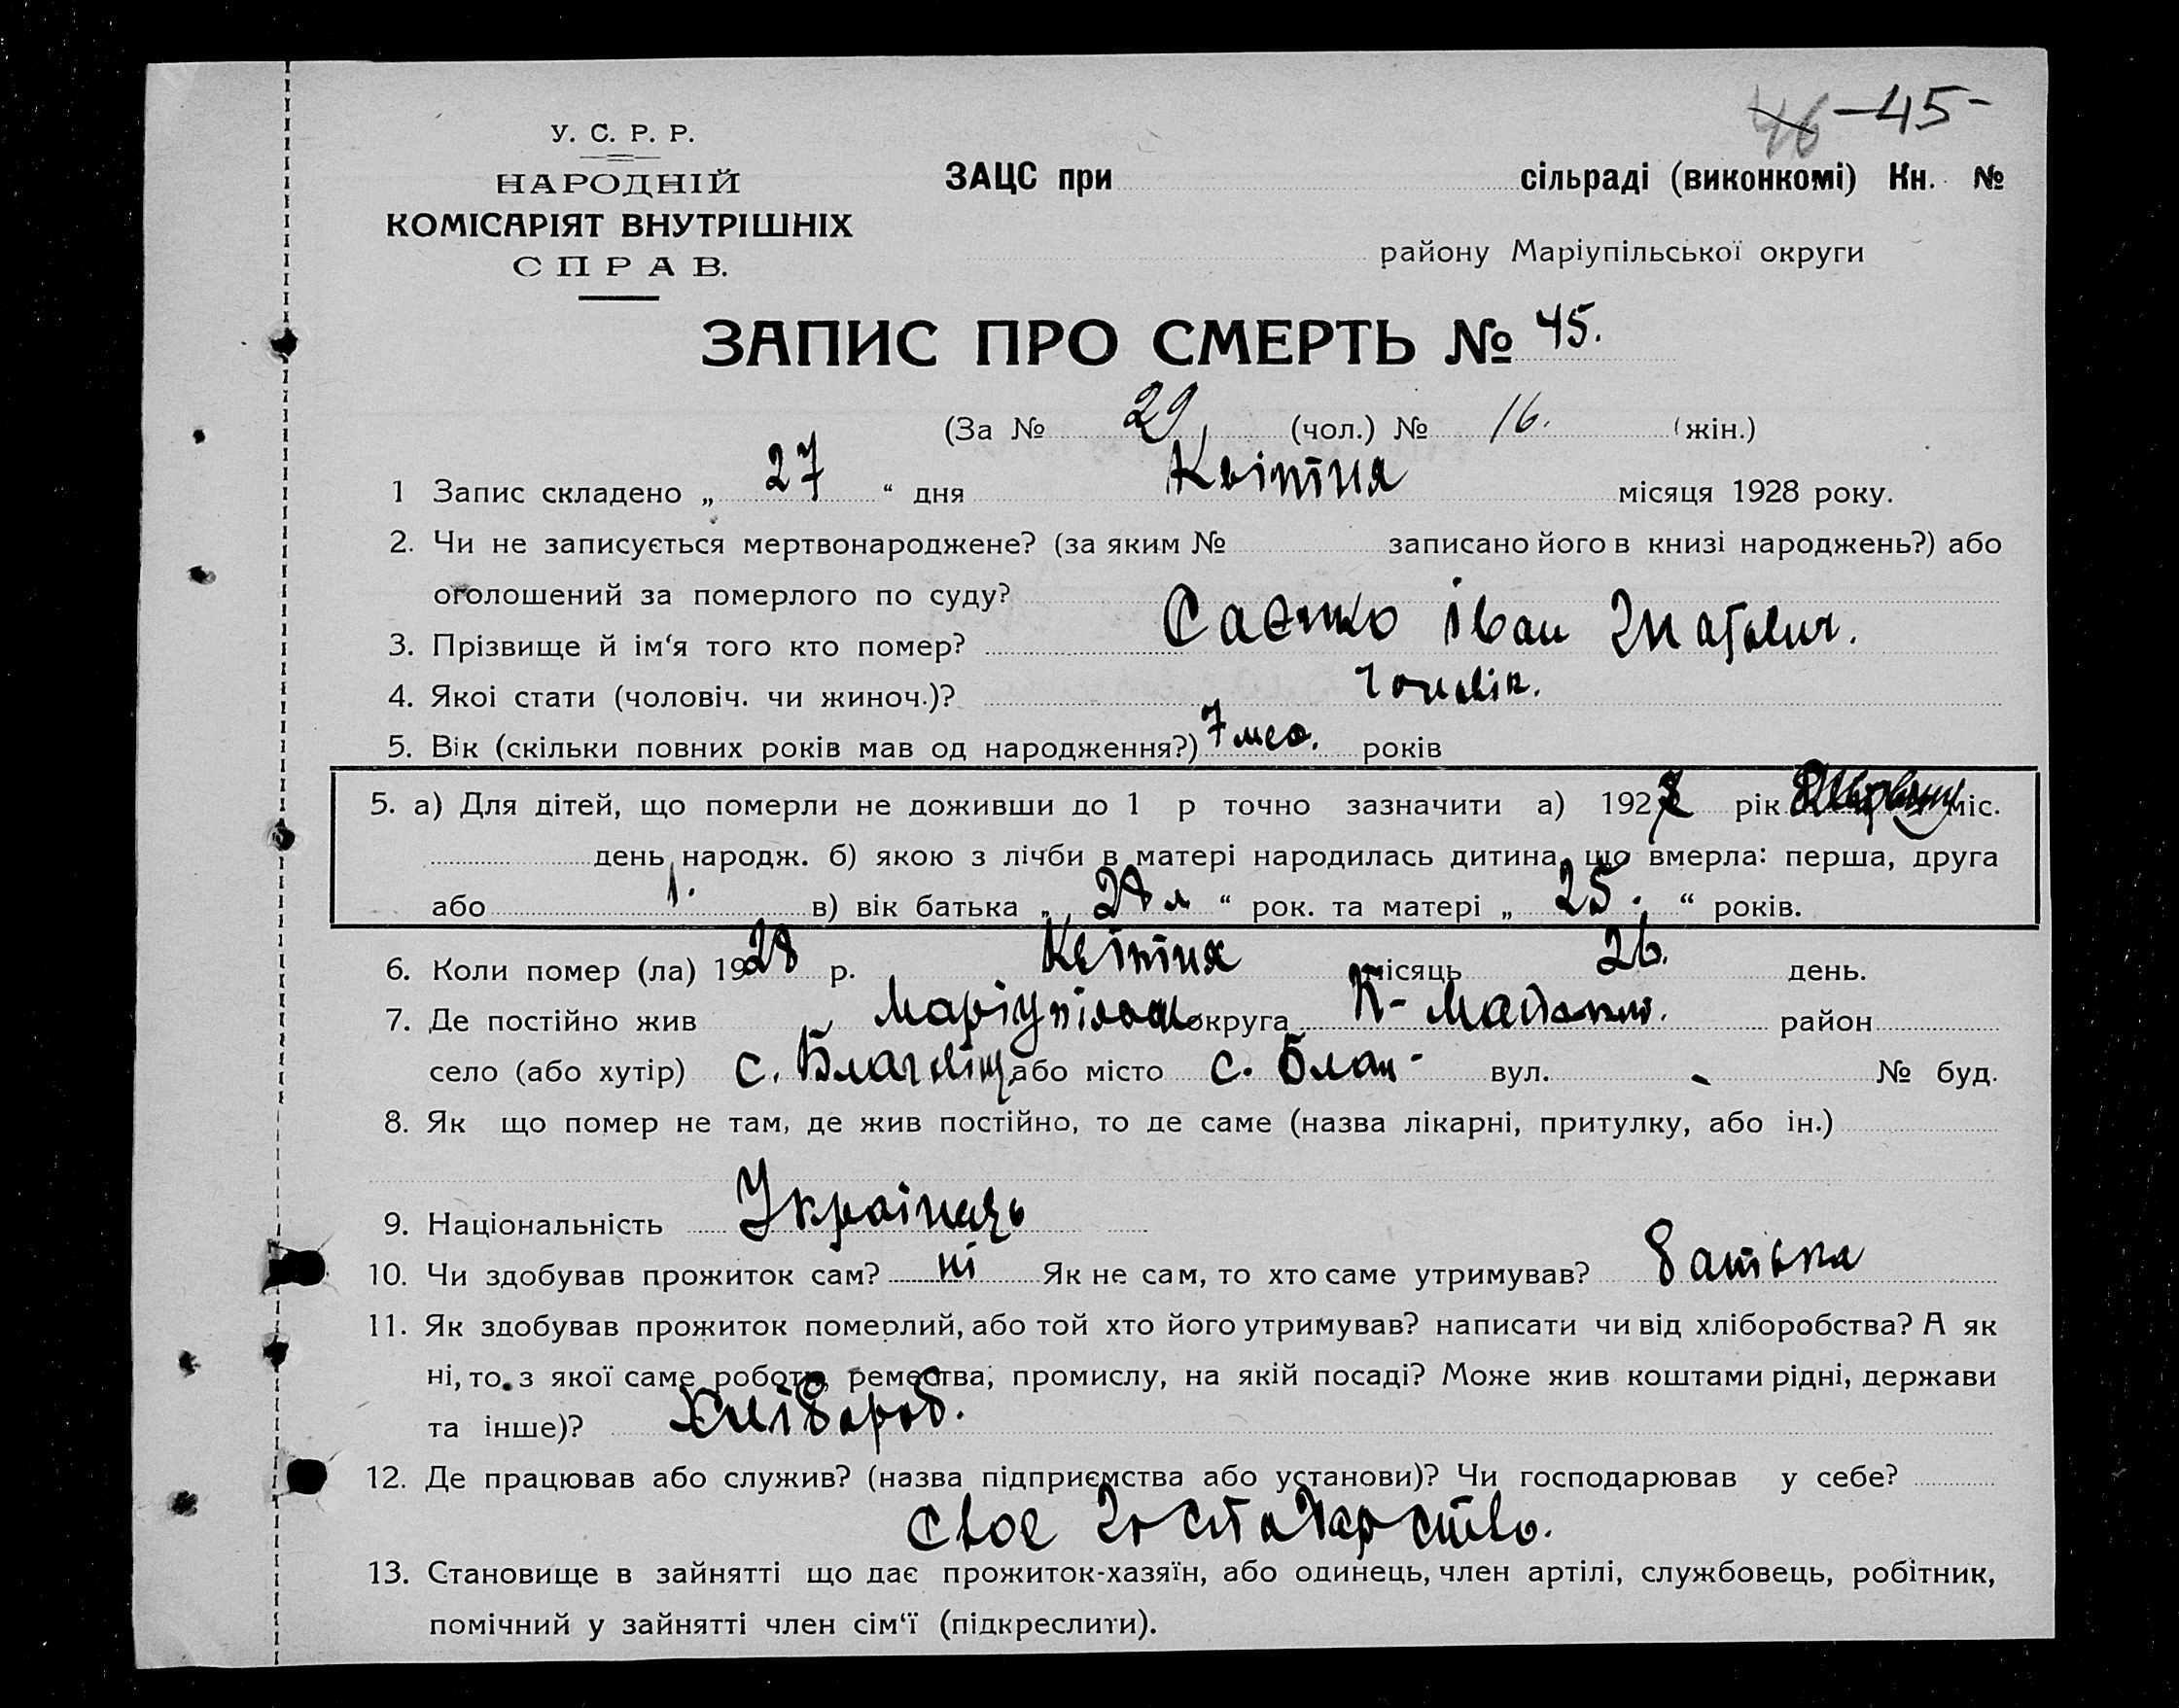 46 -45-
У. С. Р. Р.
НАРОДНІЙ
КОМІСАРІЯТ ВНУТРІШНІХ
СПРАВ.
ЗАЦС при сільраді (виконкомі) Кн. №
району Маріупільської округи
ЗАПИС ПРО СМЕРТЬ № 45.
(За № 29 (чол.) № 16. (жін.)
1 Запис складено „ 27 “ дня Квітня місяця 1928 року.
2. Чи не записується мертвонароджене? (за яким № записано його в книзі народжень?) або
оголошений за померлого по суду?
3. Прізвище й ім‘я того кто помер? Саєнко Іван Гнатович.
4. Якоі стати (чоловіч. чи жиноч.)? Чоловік.
5. Вік (скільки повних років мав од народження?) 7 мес. років
5. а) Для дітей, що померли не доживши до 1 р точно зазначити а) 1927 рік міс.
день народж. б) якою з лічби в матері народилась дитина, що вмерла: перша, друга
або 1. в) вік батька „ 28 л “ рок. та матері „ 25. “ років.
6. Коли помер (ла) 1928 р. Квітня місяць 26. день.
7. Де постійно жив округа район
село (або хутір) с. Благовіщ або місто с. Благ- вул. - № буд.
8. Як що помер не там, де жив постійно, то де саме (назва лікарні, притулку, або ін.)
9. Національність Українець
10. Чи здобував прожиток сам? ні Як не сам, то хто саме утримував? батька
11. Як здобував прожиток померлий, або той хто його утримував? написати чи від хліборобства? А як
ні, то з якої саме роботи, ремества, промислу, на якій посаді? Може жив коштами рідні, держави
та інше)? Хлібороб.
12. Де працював або служив? (назва підприємства або установи)? Чи господарював у себе?
Своє Господарство.
13. Становище в зайнятті що дає прожиток-хазяїн, або одинець, член артілі, службовець, робітник,
помічний у зайнятті член сім‘ї (підкреслити).